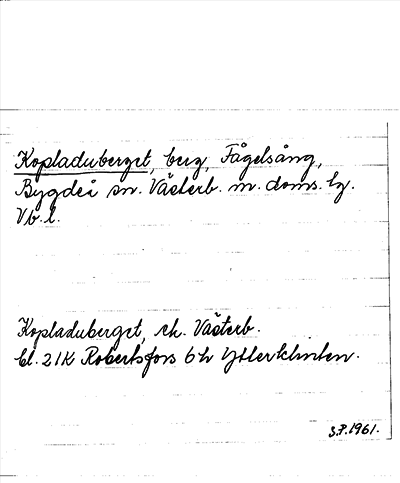 Kopladuberget, berg, Fågelsång,
Bygdeå sn. Västerb. m. doms. tg.
Vb. l.
Kopladuberget, ek. Västerb.
bl. 21K Robertsfors 6h Ytterklinten.
S.P. 1961.